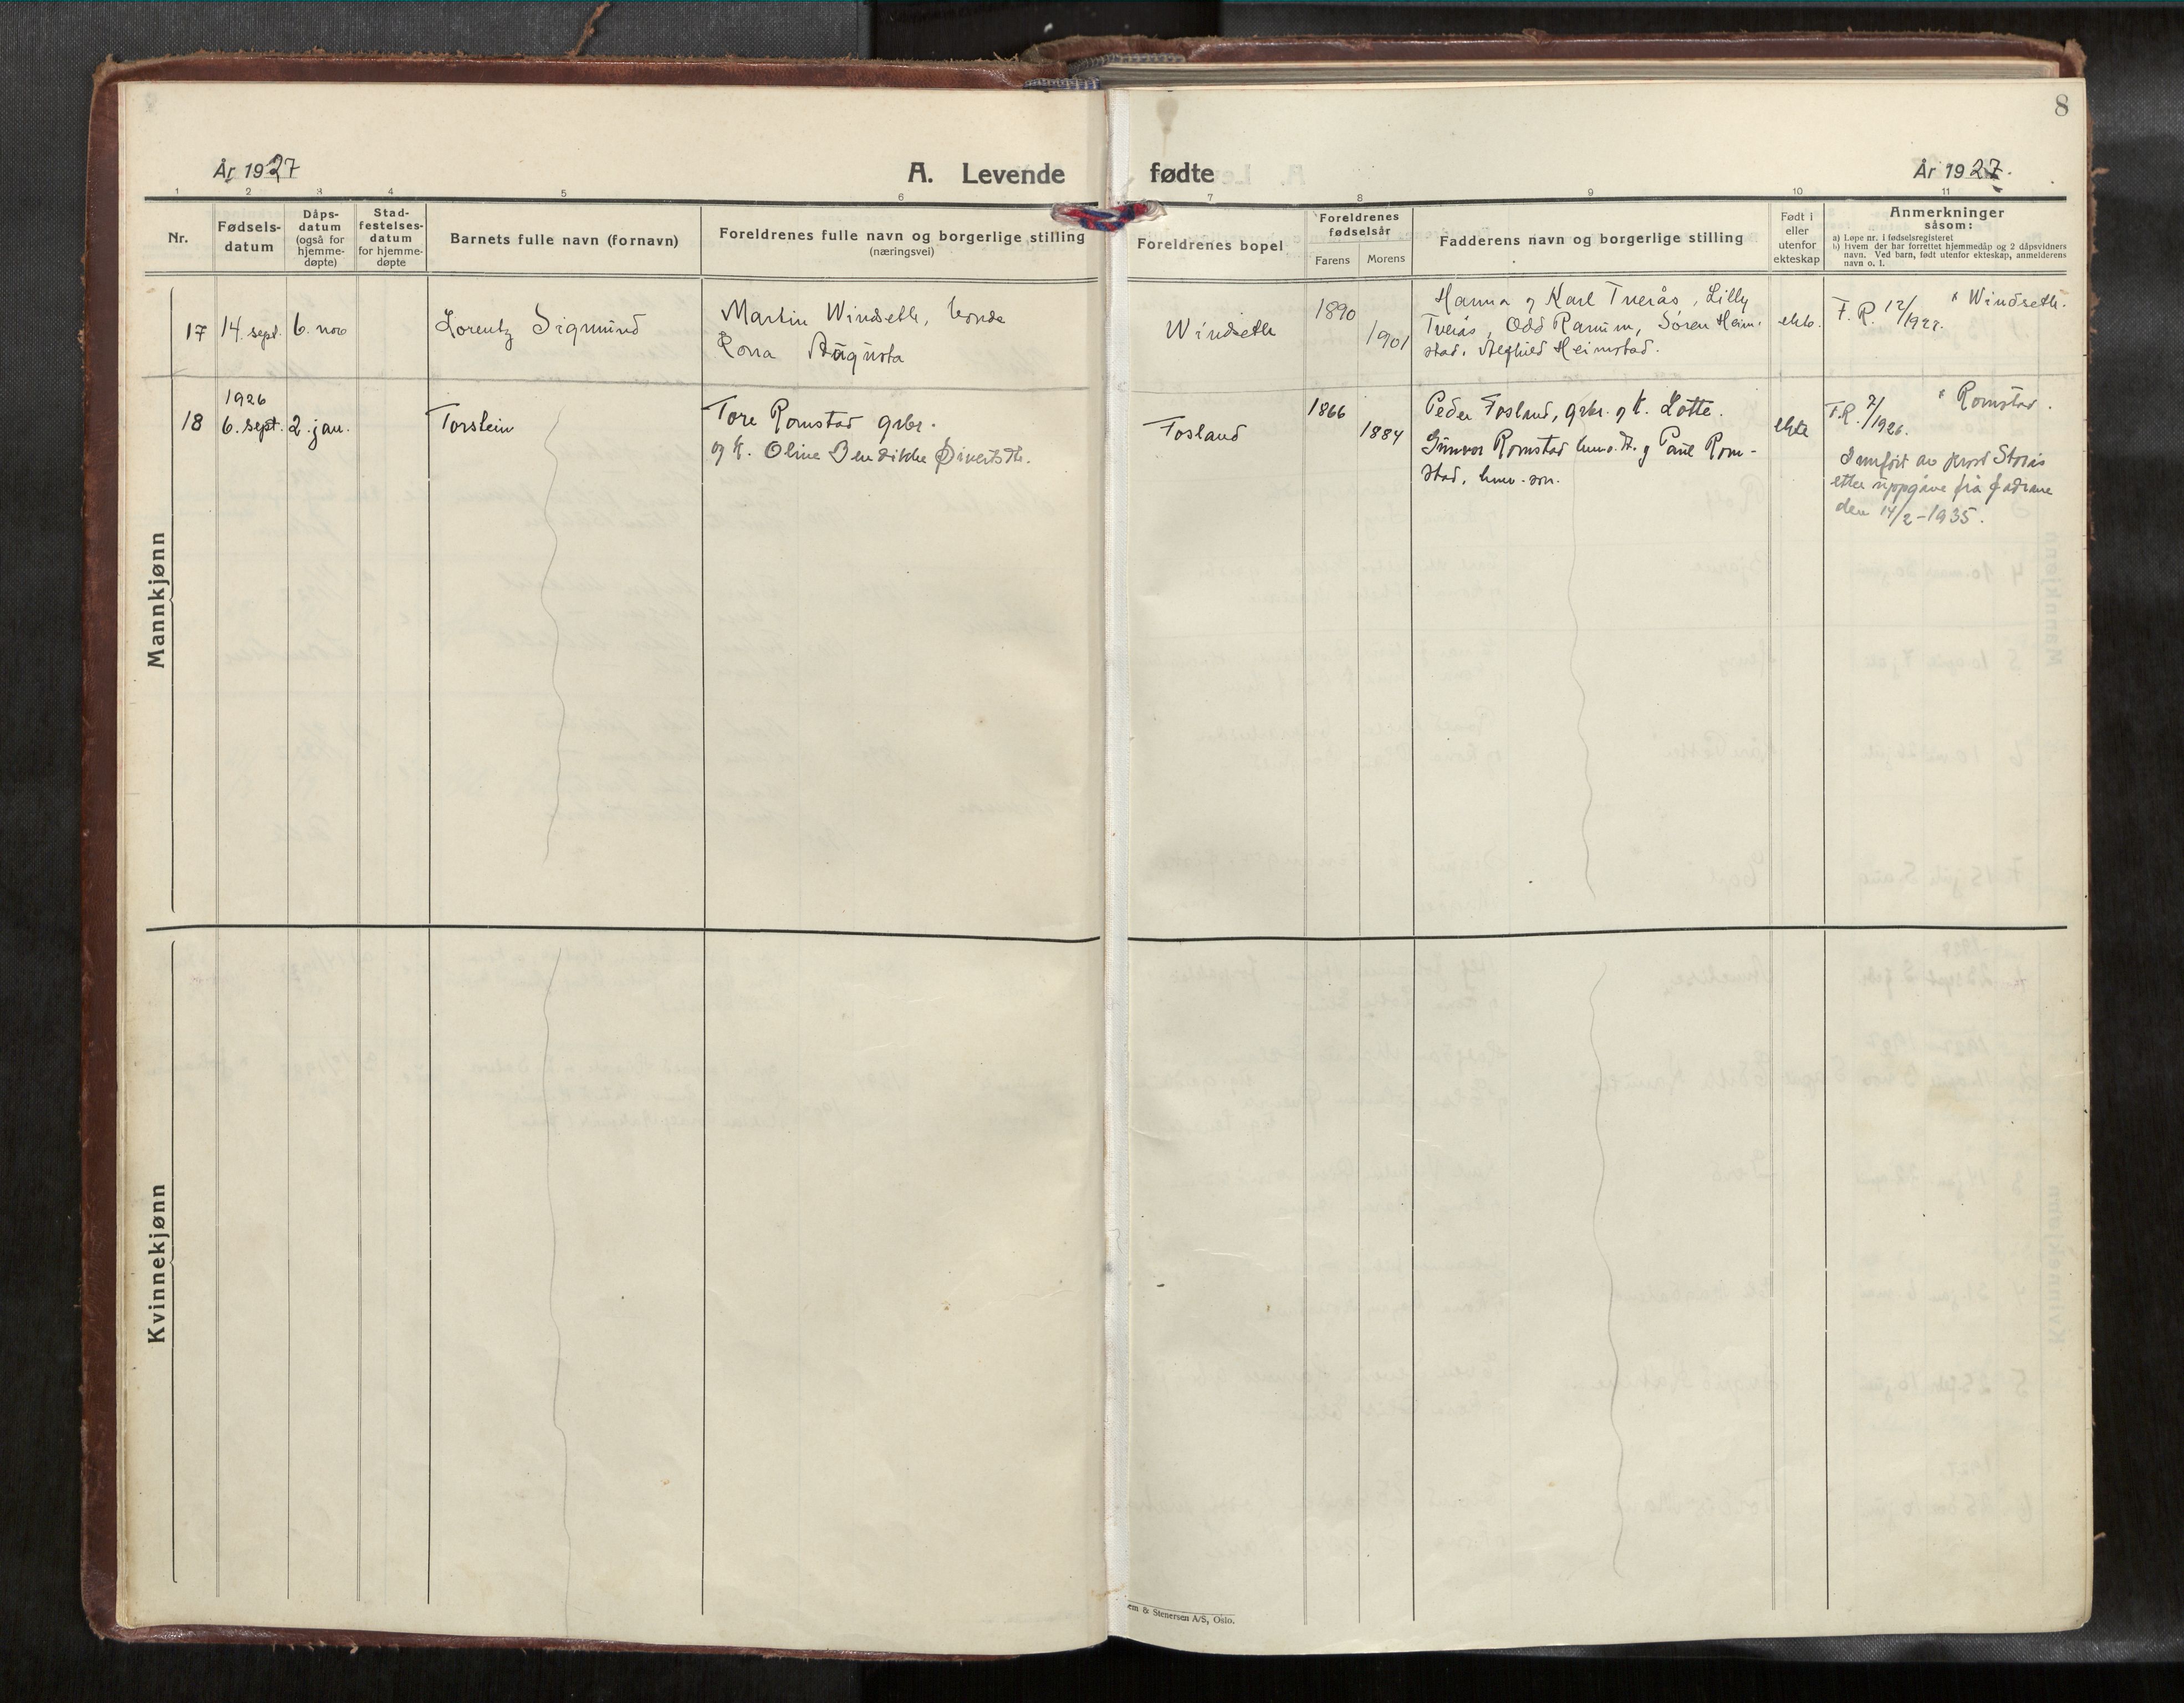 8
År 1927
A. Levende
fødte
År 1927.
1 2 3 4 5 6 7 8 9 10 11
Nr.
Fødsels-
datum
Dåps-
datum
(også for
hjemme-
døpte)
Stad-
festelses-
datum
for hjemme-
døpte
Barnets fulle navn (fornavn)
Foreldrenes fulle navn og borgerlige stilling
(næringsvei)
Foreldrenes bopel
Foreldrenes
fødselsår
Farens
Morens
Fadderens navn og borgerlige stilling
Født i
eller
utenfor
ekteskap
Anmerkninger
såsom:
a) Løpe nr. i fødselsregisteret
b) Hvem der har forrettet hjemmedåp og 2 dåpsvidners
navn. Ved barn, født utenfor ekteskap, anmelderens
navn o. l.
Mannkjønn
17
14. sept.
6. nov
Lorentz Sigmund
Martin Windseth, bonde
Kona Augusta
Windseth
1890
1901
Hanna og Karl Tverås, Lilly
Tverås, Odd Ranum, Søren Heim-
stad, Heimstad.
ekte.
F. R. 12/1927.
* Windseth.
18
1926
6. sept.
2. jan.
Torstein
Tore Romstad grbr.
og K. Oline Bendikke Sivertsdtr.
Fosland
1866
1884
Peder Fosland, grbr. og K. Lotte.
Gunvor Romstad hmv. dt. og Paul Rom-
stad, hmv. søn.
ekte
F.R. 7/1926.
* Romstad.
Innført av prost Storås
etter uppgåve frå fadrane
den 14/2-1935.
Kvinnekjønn
em & Stenersen A/S, Oslo.